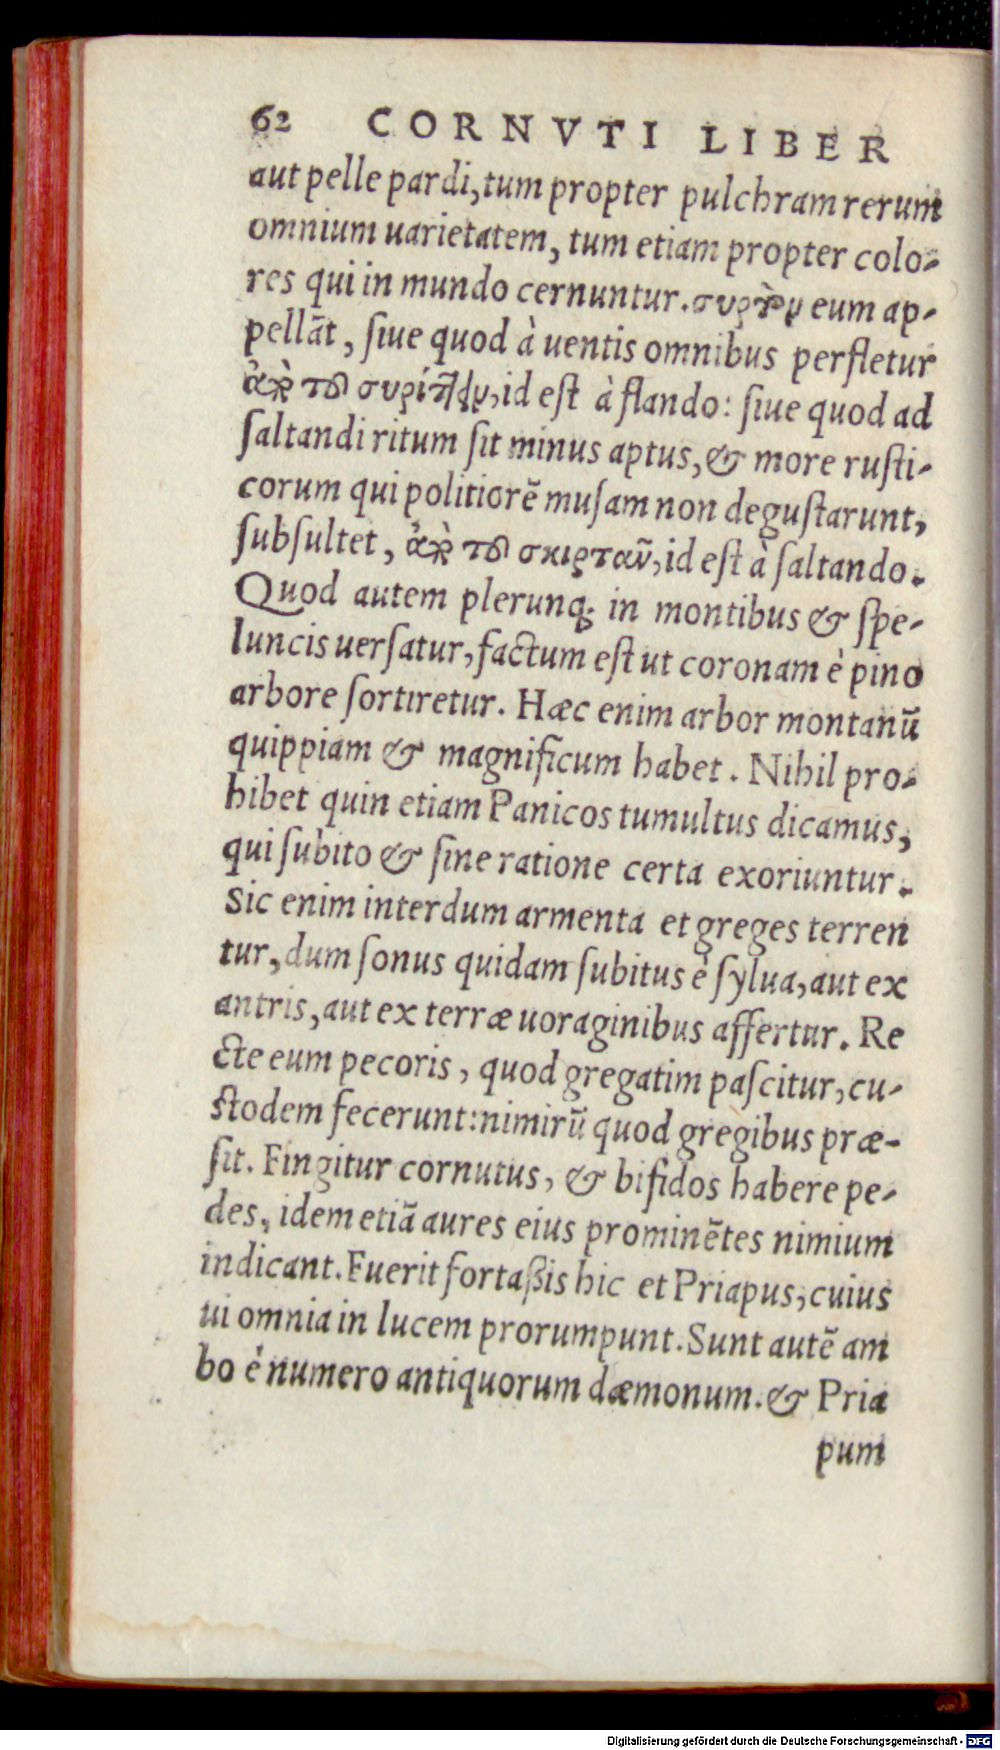 62 CORNVTI LIBER
aut pelle pardi, tum propter pulchram rerum
omnium uarietatem, tum etiam propter colo-
res qui in mundo cernuntur. eum ap-
pellāt, ſiue quod à uentis omnibus perfletur
ἀπὸ τοῦ συρίττειν, id eſt à flando: ſiue quod ad
ſaltandi ritum ſit minus aptus, & more ruſti-
corum qui politiorē muſam non deguſtarunt,
ſubſultet, ἀπὸ τοῦ σκιρταῦ, id eſt à ſaltando.
Quod autem plerunq; in montibus & ſpe-
luncis uerſatur, factum eſt ut coronam è pino
arbore ſortiretur. Hæc enim arbor montanū
quippiam & magnificum habet. Nihil pro-
hibet quin etiam Panicos tumultus dicamus,
qui ſubito & ſine ratione certa exoriuntur.
Sic enim interdum armenta et greges terren
tur, dum ſonus quidam ſubitus è ſylua, aut ex
antris, aut ex terræ uoraginibus affertur. Re
cte eum pecoris, quod gregatim paſcitur, cu-
ſtodem fecerunt: nimirū quod gregibus præ-
ſit. Fingitur cornutus, & bifidos habere pe-
des, idem etiā aures eius prominētes nimium
indicant. Fuerit fortaßis hic et Priapus, cuius
ui omnia in lucem prorumpunt. Sunt autē am
bo è numero antiquorum dæmonum. & Pria
pum
Digitalisierung gefördert durch die Deutsche Forschungsgemeinschaft - DFG